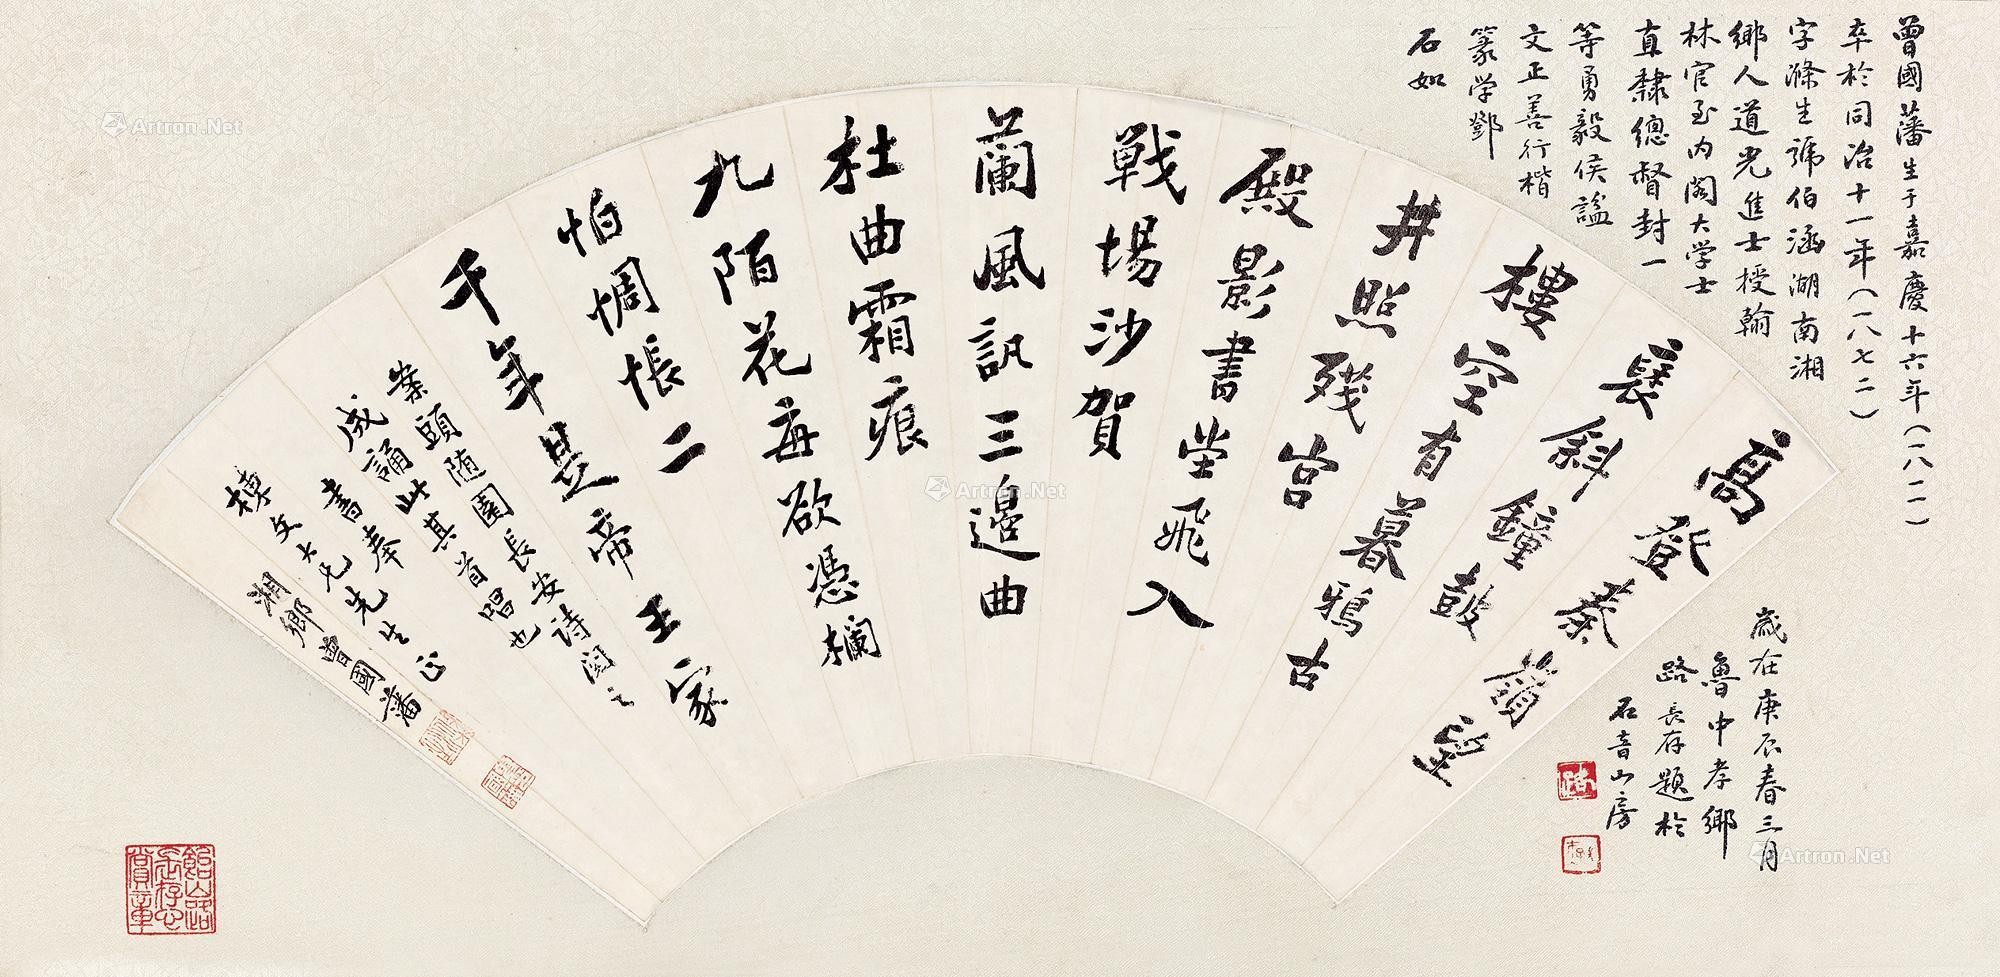 曾國藩生于嘉慶十六年(一八一一)
卒於同治十一年(一八七二)
字滌生號伯涵湖南湘
鄉人道光進士授翰
林官至内閣大学士
直隸總督封一
等勇毅侯謚
文正善行楷
篆学鄧
石如
歲在庚辰春三月
魯中孝鄉
路長存題於
石音山房
高登秦嶺望
褒斜鐘鼓
樓空有暮鴉古
井照殘宮
殿影書堂飛入
戰場沙賀
蘭風訊三邊曲
杜曲霜痕
九陌花每欲憑欄
怕惆悵二
千年是帝王家
案頭随園長安诗閲之
成誦此其首唱也
書奉
樗文大兄先生正
湘鄉曾國藩
Artron.Net
Artron.Net
Artron.Net